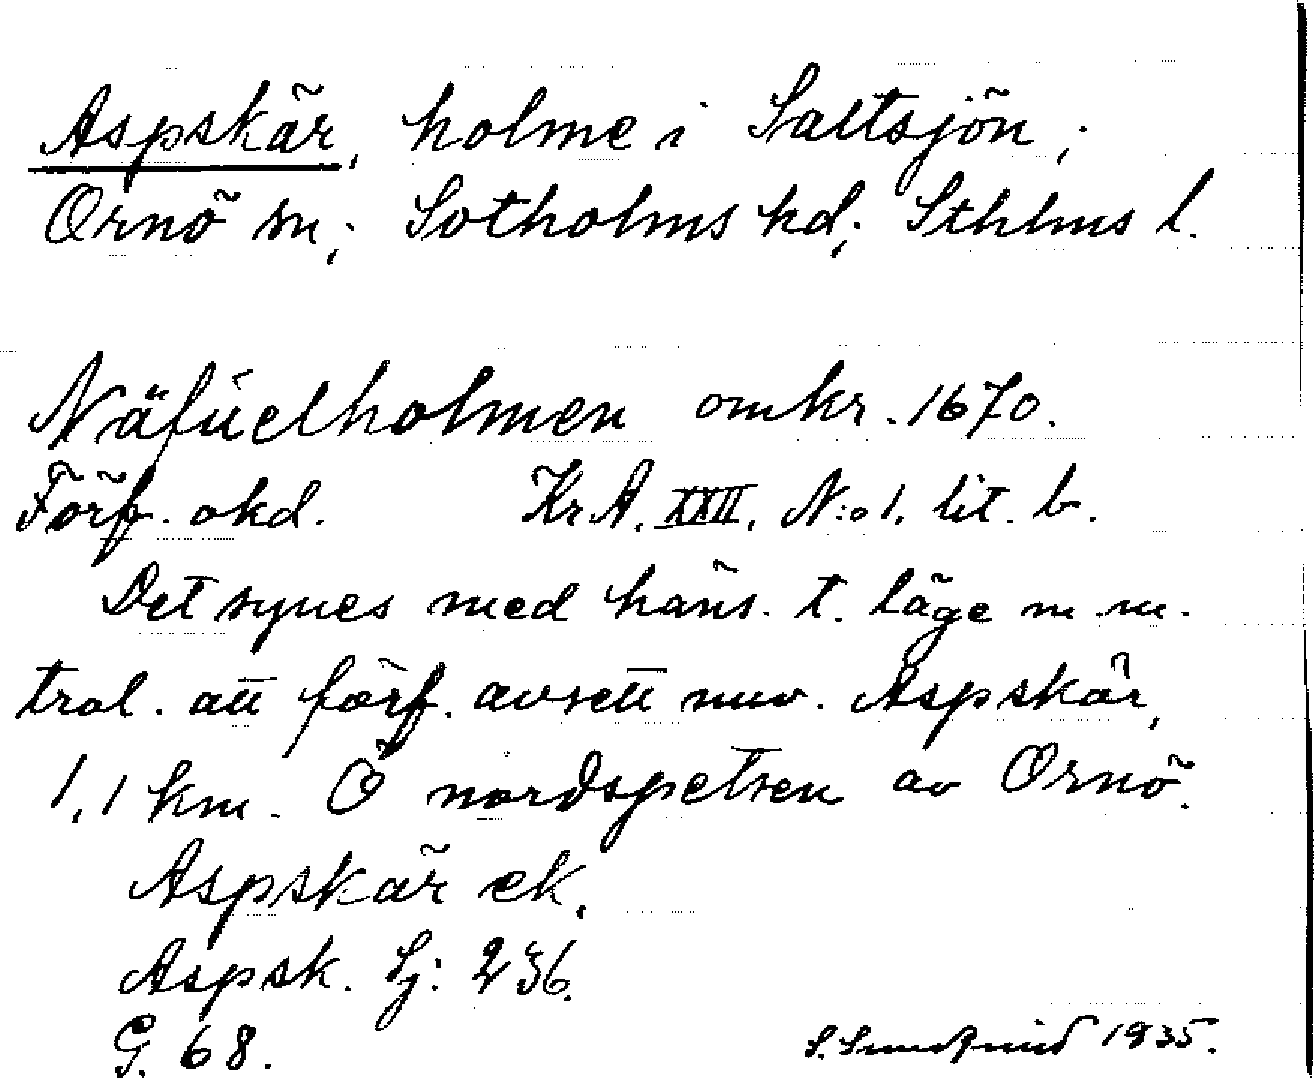 Aspskär, holme i Saltsjön;
Ornö sn; Sotholms hd; Sthlms l.
Näfúelholmen omkr. 1670.
Förf. okd. Kr A. XXII. N:o 1. lit. b.
Det synes med häns. t. läge m m.
trol. att förf. avsett nuv. Aspskär,
1,1 km. Ö nordspetsen av Ornö.
Aspskär ek.
Aspsk. Sj: 236.
G. 68.
S. 1935.